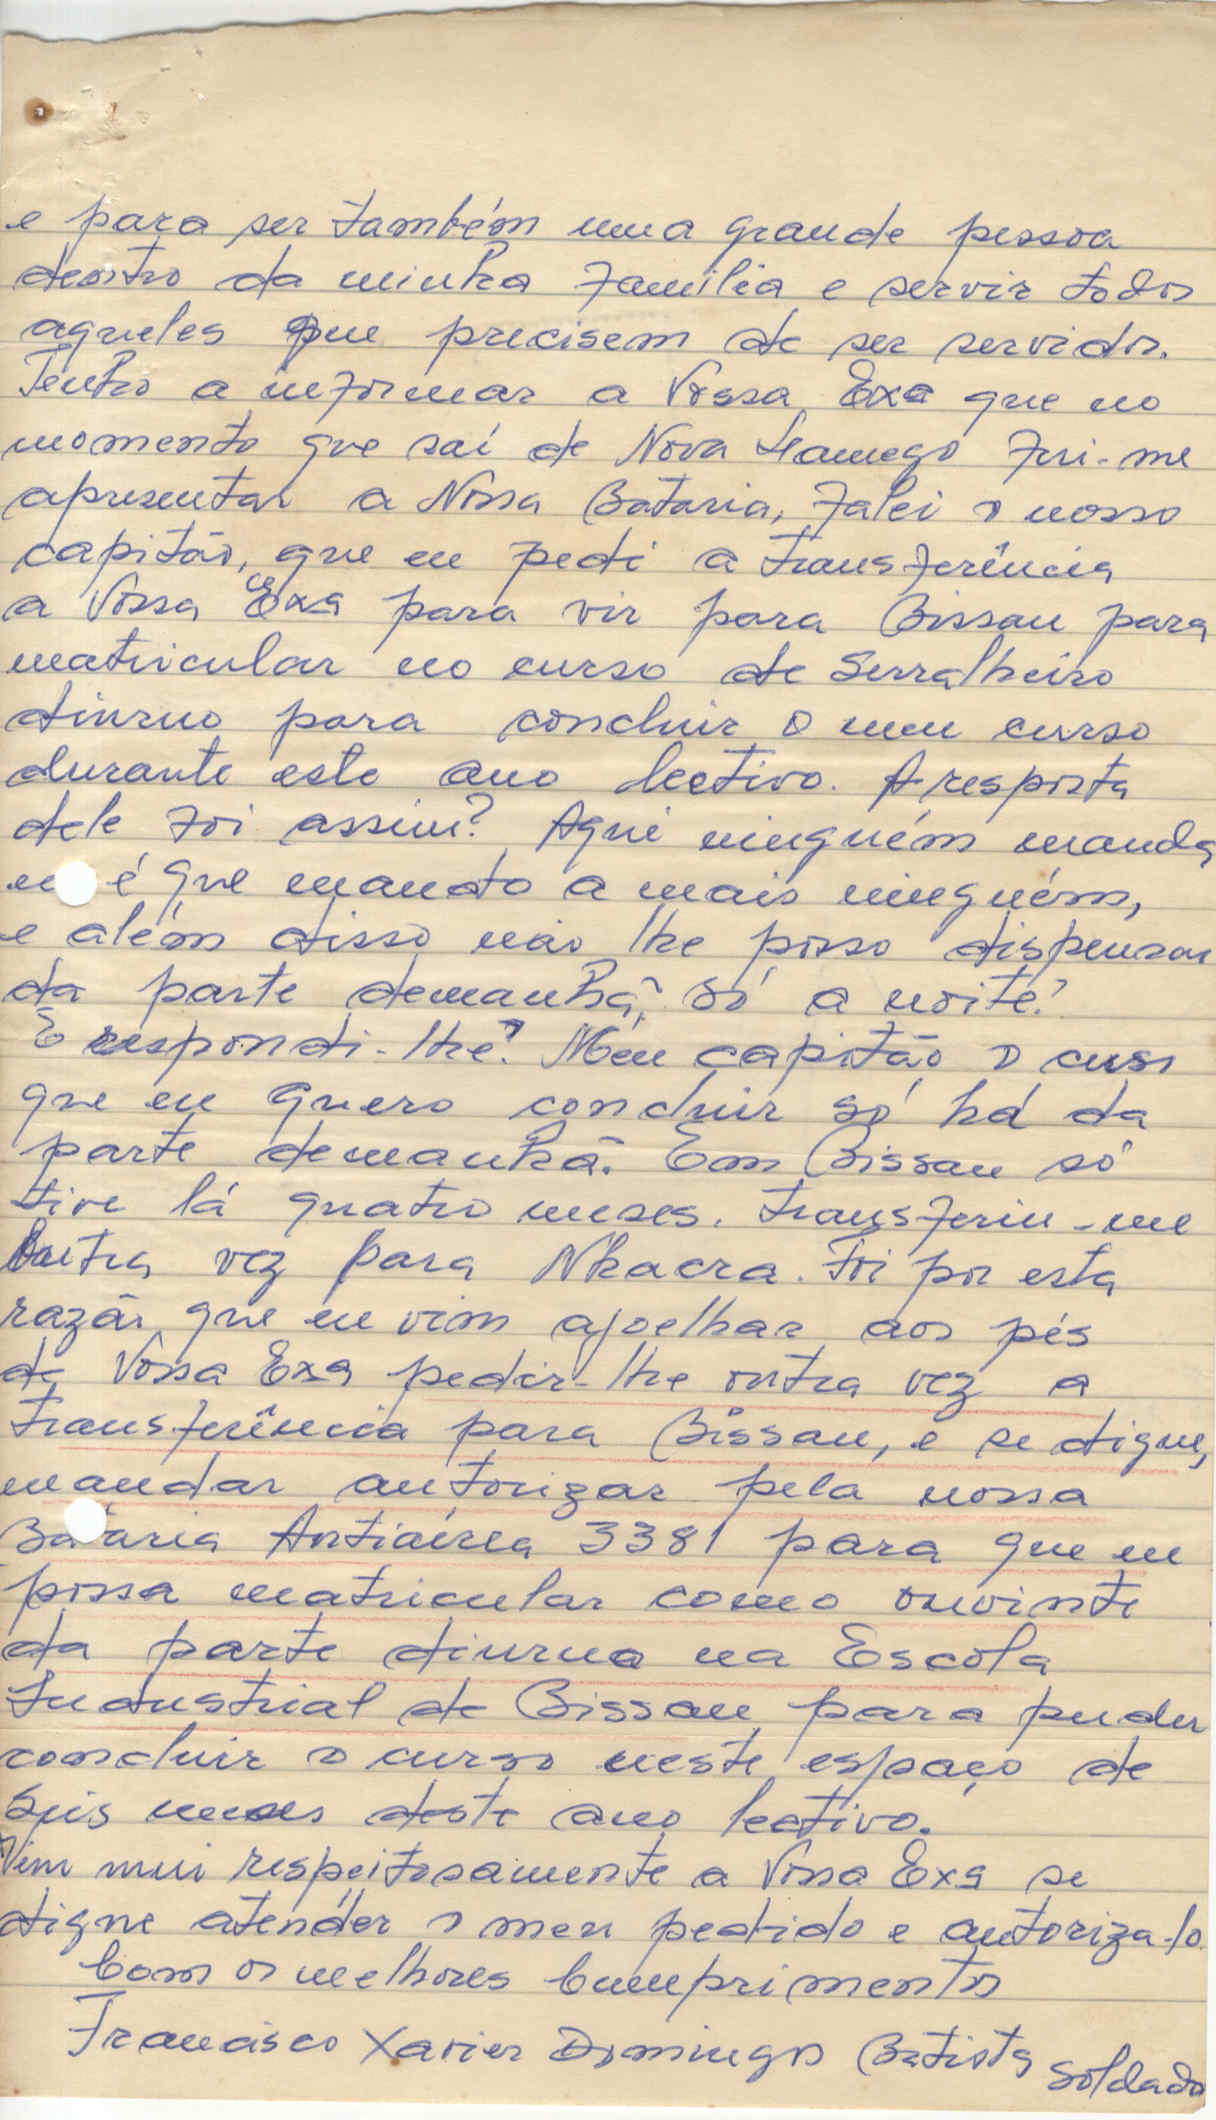 e para ser também uma grande pessoa
dentro da minha Família e servir todos
aqueles que precisem de ser servidos.
Tenho a informar a Vossa Exa que no
momento que saí de Nova Lamego fui-me
apresentar a Nossa Bataria, falei o nosso
capitão, que eu pedi a transferência
a Vossa Exa para vir para Bissau para
matricular no curso de Serralheiro
diurno para concluir o meu curso
durante este ano lectivo. A resposta
dele foi assim? Aqui ninguém manda
é que mando a mais ninguém,
e além disso não lhe posso dispensar
da parte demanhã, só a noite?
E respondi-lhe? Meu capitão o curso
que eu quero concluir só há da
parte demanhã. Em Bissau só
tive lá quatro meses. transferiu-me
outra vez para Nhacra. Foi por esta
razão que eu vim ajoelhar aos pés
de Vossa Exa pedir-lhe outra vez a
transferência para Bissau, e se digne,
mandar autorizar pela nossa
Bataria Antiaérea 3381 para que eu
possa matricular como ouvinte
da parte diurna na Escola
Industrial de Bissau para puder
concluir o curso neste espaço de
seis meses deste ano lectivo.
Vem mui respeitosamente a Vossa Exa se
digne atender o meu pedido e autoriza-lo.
Com os melhores Cumprimentos
Francisco Xavier Domingos Batista Soldado